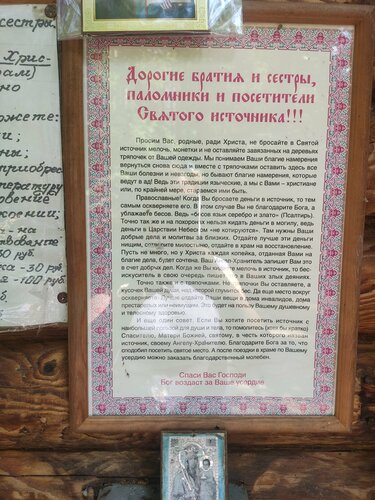 сестры,
Хрис-
рам)
но
ржете:
и;
ны;
приобрес
пературу
ровение
коении;
- на
вование
е
са -30 руб
-100 руб.
Дорогие братия и сестры,
паломники и посетители
Святого источника!!!
Просим Вас, родные, ради Христа, не бросайте в Святой
источник мелочь, монетки и не оставляйте завязанных на деревьях
тряпочек от Вашей одежды. Мы понимаем Ваши благие намерения
вернуться снова сюда и вместе с тряпочками оставить здесь все
Ваши болезни и невзгоды, но бывают благие намерения, которые
ведут в ад! Ведь эти традиции языческие, а мы с Вами – христиане
или, по крайней мере, стараемся ими быть.
Православные! Когда Вы бросаете деньги в источник, то тем
самым оскверняете его. В этом случае Вы не благодарите Бога, а
ублажаете бесов. Ведь «бо́зи язык серебро и злато» (Псалтирь).
Точно так же и на похоронах нельзя кидать деньги в могилу, ведь
деньги в Царствии Небесном «не котируются». Там нужны Ваши
добрые дела и молитва за близких. Отдайте лучше эти деньги
нищим, сотворите милостыню, отдайте в храм на восстановление.
Пусть не много, но у Христа каждая копейка, отданная Вами на
благие дела, будет сочтена. Ваш Ангел-Хранитель запишет Вам это
в счет добрых дел. Когда же Вы кидаете мелочь в источник, то бес-
искуситель в свою очередь пишет это в Ваших злых деяниях.
Точно также и с тряпочками. Не тряпочки Вы оставляете, а
частичку Вашей души, над которой глумится бес. Да еще место вокруг
оскверняете. Лучше отдайте Ваши вещи в дома инвалидов, дома
престарелых или неимущим. Это будет на пользу Вашему душевному
и телесному здоровью.
И еще один совет. Если Вы хотите посетить источник с
наибольшей пользой для души и тела, то помолитесь (хотя бы кратко)
Спасителю, Матери Божией, святому, в честь которого назван
источник, своему Ангелу-Хранителю. Благодарите Бога за то, что
сподобил посетить святое место. А после поездки в храме по Вашему
усердию можно заказать благодарственный молебен.
Спаси Вас Господи
Бог воздаст за Ваше усердие